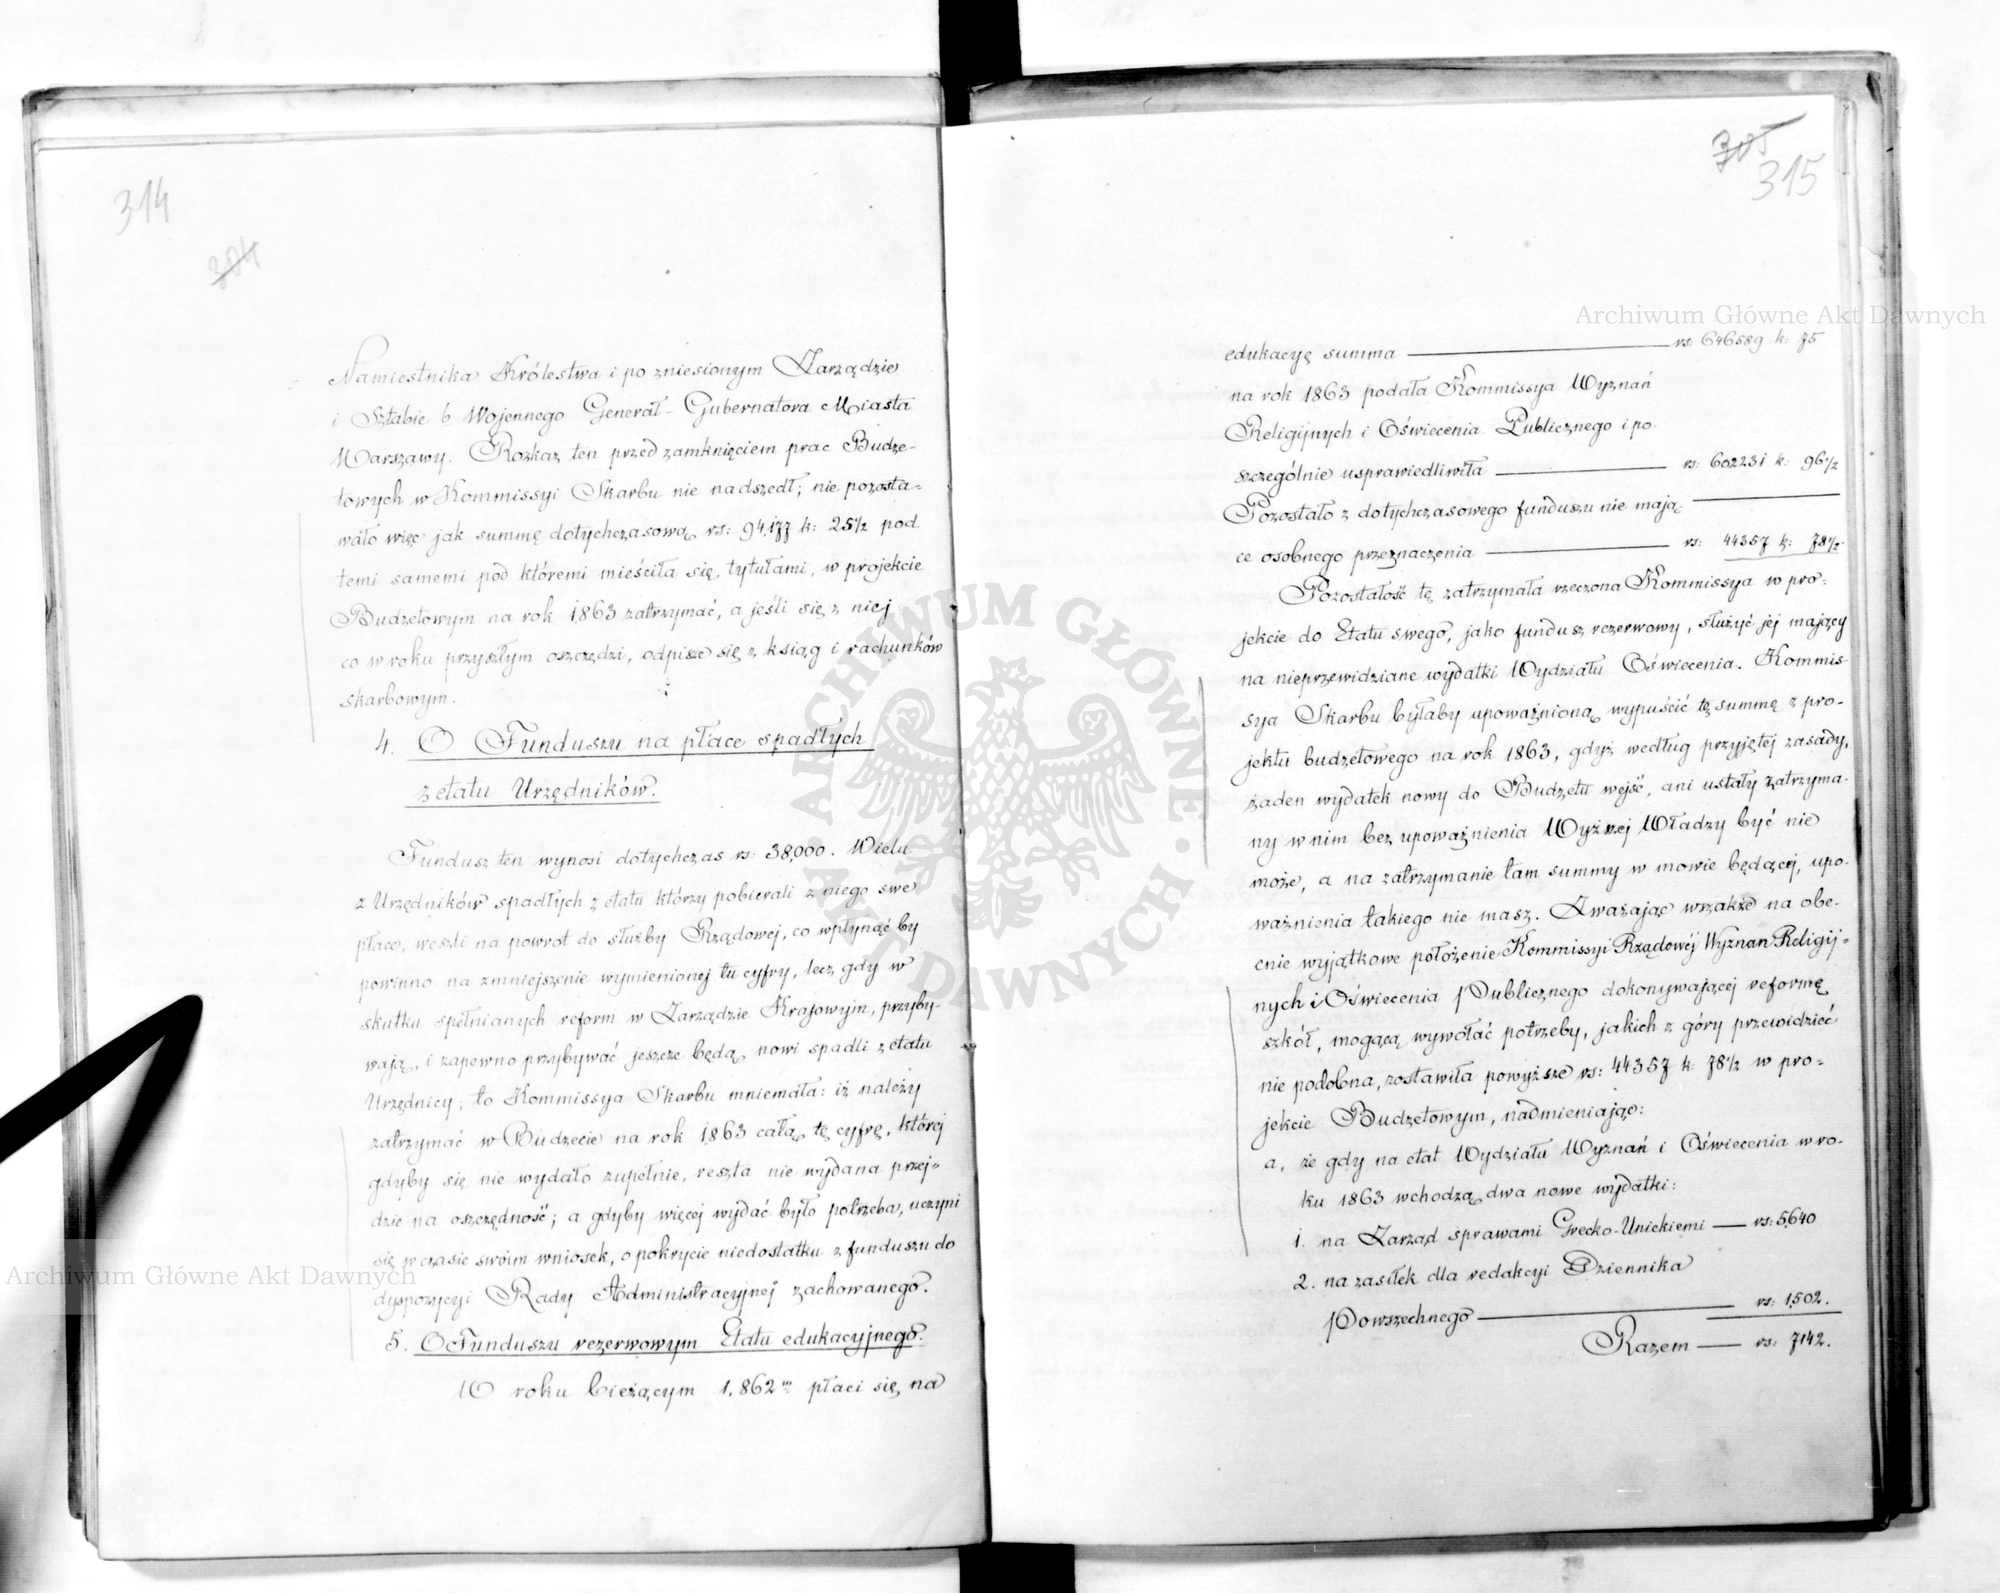 314
304
Namiestnika Królestwa i po zniesionym Zarządzie
i Sztabie b Wojennego Generał-Gubernatora Miasta
Warszawy. Rozkaz ten przed zamknięciem prac Budże-
towych w Kommissyi Skarbu nie nadszedł; nie pozosta-
wało więc jak summę dotychczasową rs: 94,177 k: 25 1/2 pod
temi samemi pod któremi mieściła się tytułami, w projekcie
Budżetowym na rok 1863 zatrzymać, a jeśli się z niej
co w roku przyszłym oszczędzi, odpisze się z ksiąg i rachunków
skarbowym.
4. O Funduszu na płace spadłych
z etatu Urzędników.
Fundusz ten wynosi dotychczas rs: 38,000. Wielu
z Urzędników spadłych z etatu którzy pobierali z niego swe
płace, weszli na powrót do służby Rządowej, co wpłynąć by
powinno na zmniejszenie wymienionej tu cyfry, lecz gdy w
skutku spełnianych reform w Zarządzie Krajowym, przyby-
wają, i zapewno przybywać jeszcze będą, nowi spadli z etatu
Urzędnicy, to Kommissya Skarbu mniemała: iż należy
zatrzymać w Budżecie na rok 1863 całą tę cyfrę, której
gdyby się nie wydało zupełnie, reszta nie wydana przej-
dzie na oszczędność; a gdyby więcej wydać było potrzeba, uczyni
się w czasie swóim wniosek, o pokrycie niedostatku z funduszu do
dyspozycyi Rady Administracyjnej zachowanego.
5. O Funduszu rezerwowym Etatu edukacyjnego.
W roku bieżącym 1,862 m płaci się na
305
315
edukacyę summa rs: 646589 k: 75
na rok 1863 podała Kommissya Wyznań
Religijnych i Oświecenia Publicznego i po
szczególnie usprawiedliwiła rs: 602231 k: 96 1/2
Pozostało z dotychczasowego funduszu nie mają-
ce osobnego przeznaczenia rs: 44357 k: 78 1/2
Pozostałość tę zatrzymała rzeczona Kommissya w pro-
jekcie do Etatu swego, jako fundusz rezerwowy, służyć jéj mający
na nieprzewidziane wydatki Wydziału Oświecenia. Kommis-
sya Skarbu byłaby upoważnioną wypuścić tę summę z pro-
jektu budżetowego na rok 1863, gdyż według przyjętej zasady,
żaden wydatek nowy do Budżetu wejść, ani ustały zatrzyma-
ny w nim bez upoważnienia Wyższej Władzy być nie
może, a na zatrzymanie tam summy w mowie będącéj, upo-
ważnienia takiego nie masz. Zważając wszakże na obe-
cnie wyjątkowe położenie Kommissyi Rządowéj Wyznań Religij-
nych i Oświecenia Publicznego dokonywającéj reformę
szkół, mogącą wywołać potrzeby, jakich z góry przewidzieć
nie podobna, zostawiła powyższe rs: 44357 k: 78 1/2 w pro-
jekcie Budżetowym, nadmieniając:
a, że gdy na etat Wydziału Wyznań i Oświecenia w ro-
ku 1863 wchodzą dwa nowe wydatki:
1. na Zarząd sprawami Grecko-Unickiemi rs: 5,640
2. na zasiłek dla redakcyi Dziennika
Powszechnego rs: 1,502.
Razem rs: 7142.
Archiwum Główne Akt Dawnych
Archiwum Główne Akt Dawnych
ARCHIWUM GŁÓWNE · AKT DAWNYCH ·